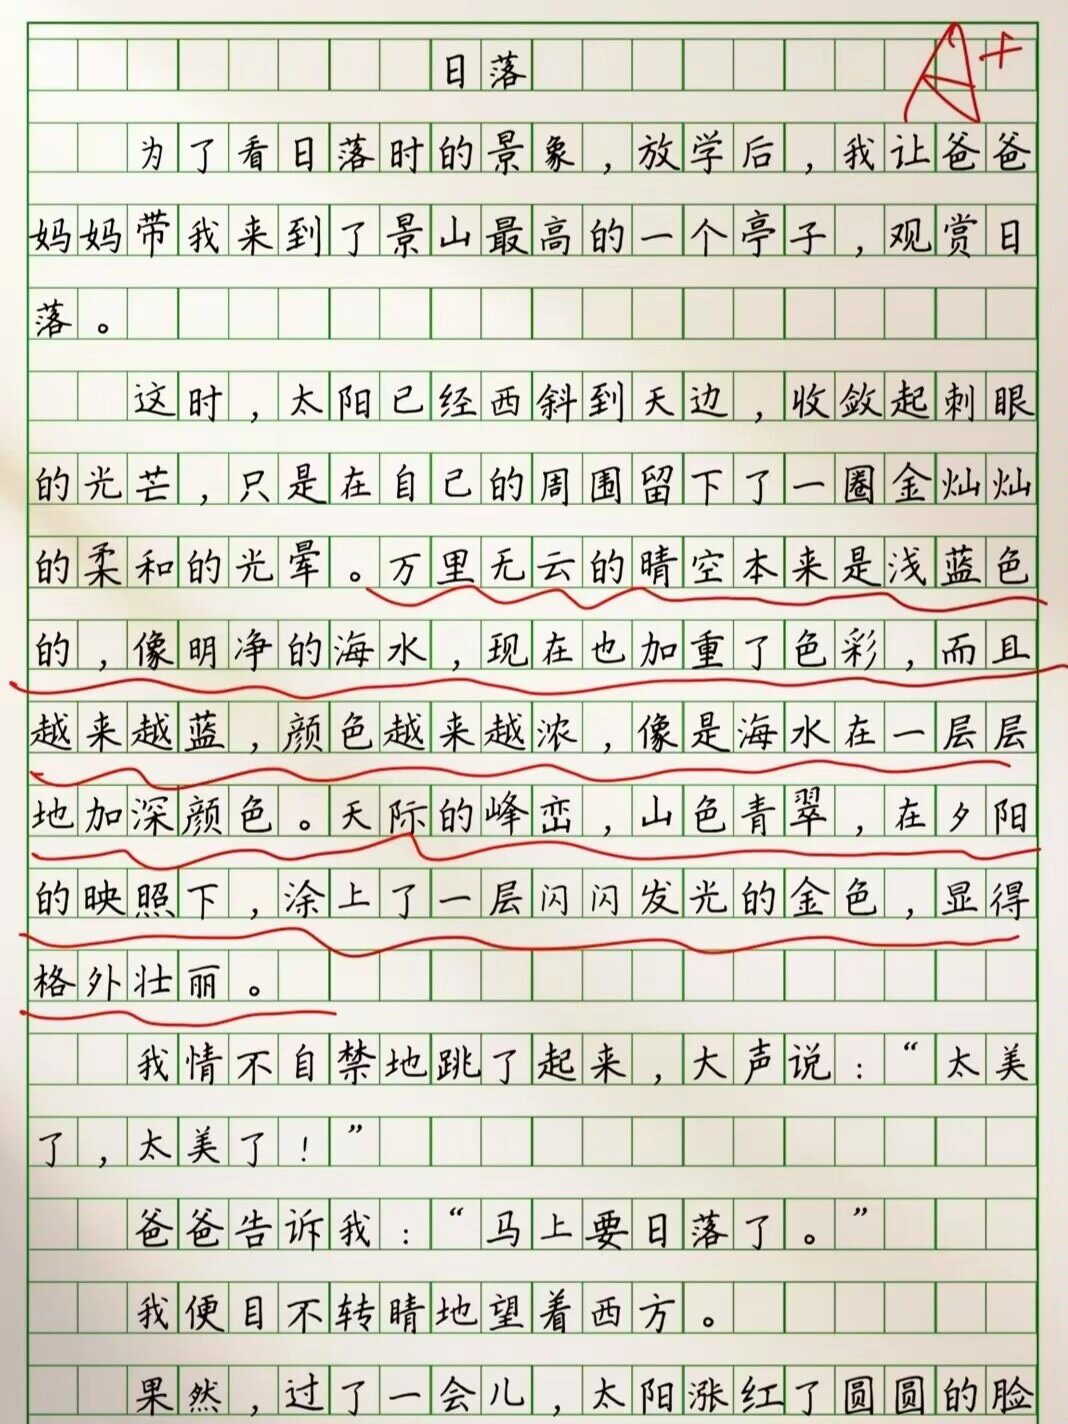 A+
日落
为了看日落时的景象，放学后，我让爸爸
妈妈带我来到了景山最高的一个亭子，观赏日
落。
这时，太阳已经西斜到天边，收敛起刺眼
的光芒，只是在自己的周围留下了一圈金灿灿
的柔和的光晕。万里无云的晴空本来是浅蓝色
的，像明净的海水，现在也加重了色彩，而且
越来越蓝，颜色越来越浓，像是海水在一层层
地加深颜色。天际的峰峦，山色青翠，在夕阳
的映照下，涂上了一层闪闪发光的金色，显得
格外壮丽。
我情不自禁地跳了起来，大声说：“太美
了，太美了！”
爸爸告诉我：“马上要日落了。”
我便目不转睛地望着西方。
果然，过了一会儿，太阳涨红了圆圆的脸